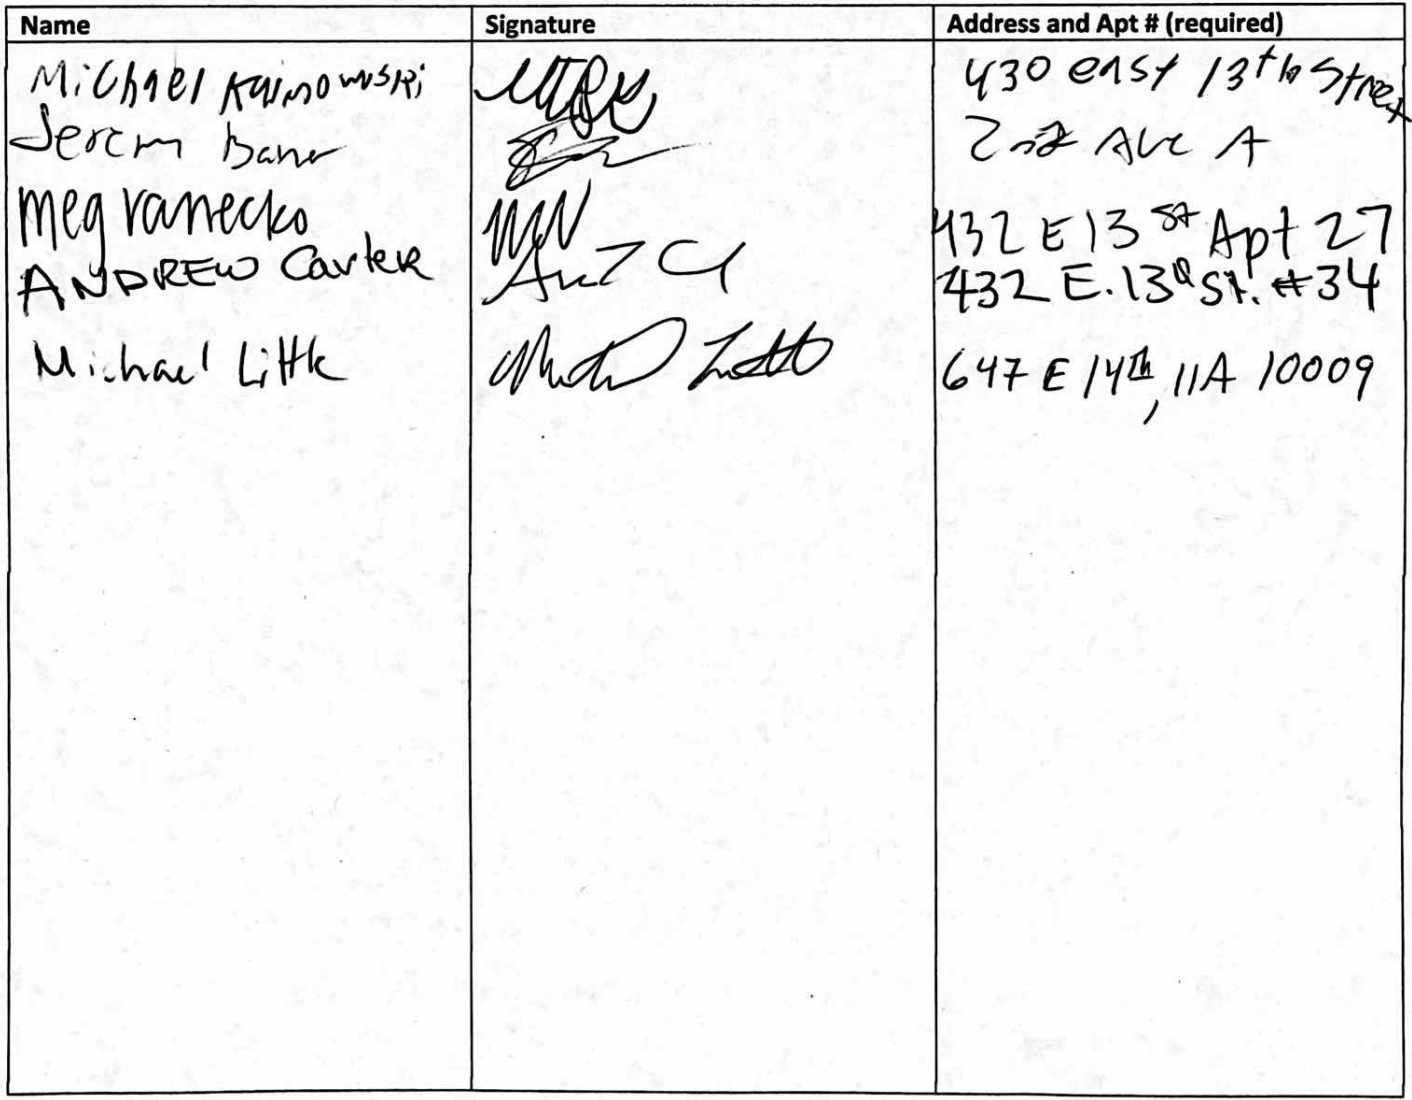 Name Signature Address and Apt # (required)
Michael 430 east 13th Street
Ave A
Meg Vanecko 432 E 13 St Apt 27
ANDREW Carter 432 E. 13th St. #34
Michael Little 647 E 14th, 11A 10009